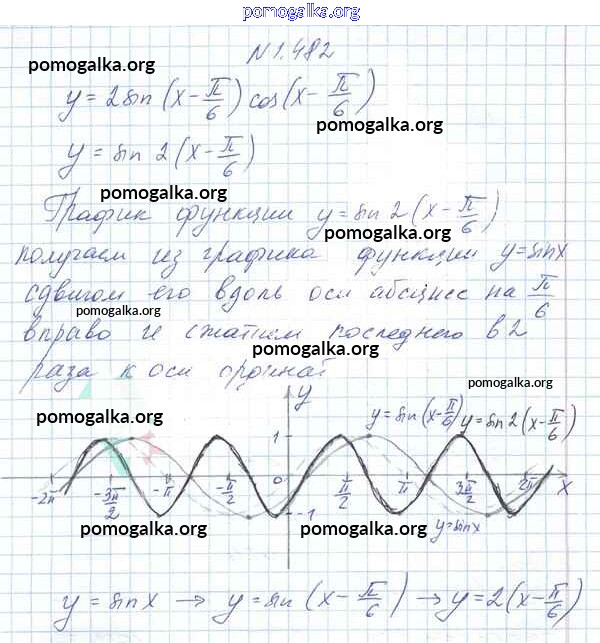 pomogalka.org
N 1.482
pomogalka.org
y = 2 sin (x - π/6) cos (x - π/6)
pomogalka.org
y = sin 2 (x - π/6)
pomogalka.org
График функции y = sin 2 (x - π/6)
pomogalka.org
получаем из графика функции y = sin x
сдвигом его вдоль оси абсцисс на π/6
pomogalka.org
вправо и сжатием последнего в 2
pomogalka.org
раза к оси ординат
pomogalka.org
y
pomogalka.org
y = sin (x - π/6) y = sin 2 (x - π/6)
1
-2π -3π/2 -π -π/2 0 π/2 π 3π/2 2π x
-1
y = sin x
pomogalka.org pomogalka.org
y = sin x → y = sin (x - π/6) → y = 2 (x - π/6)